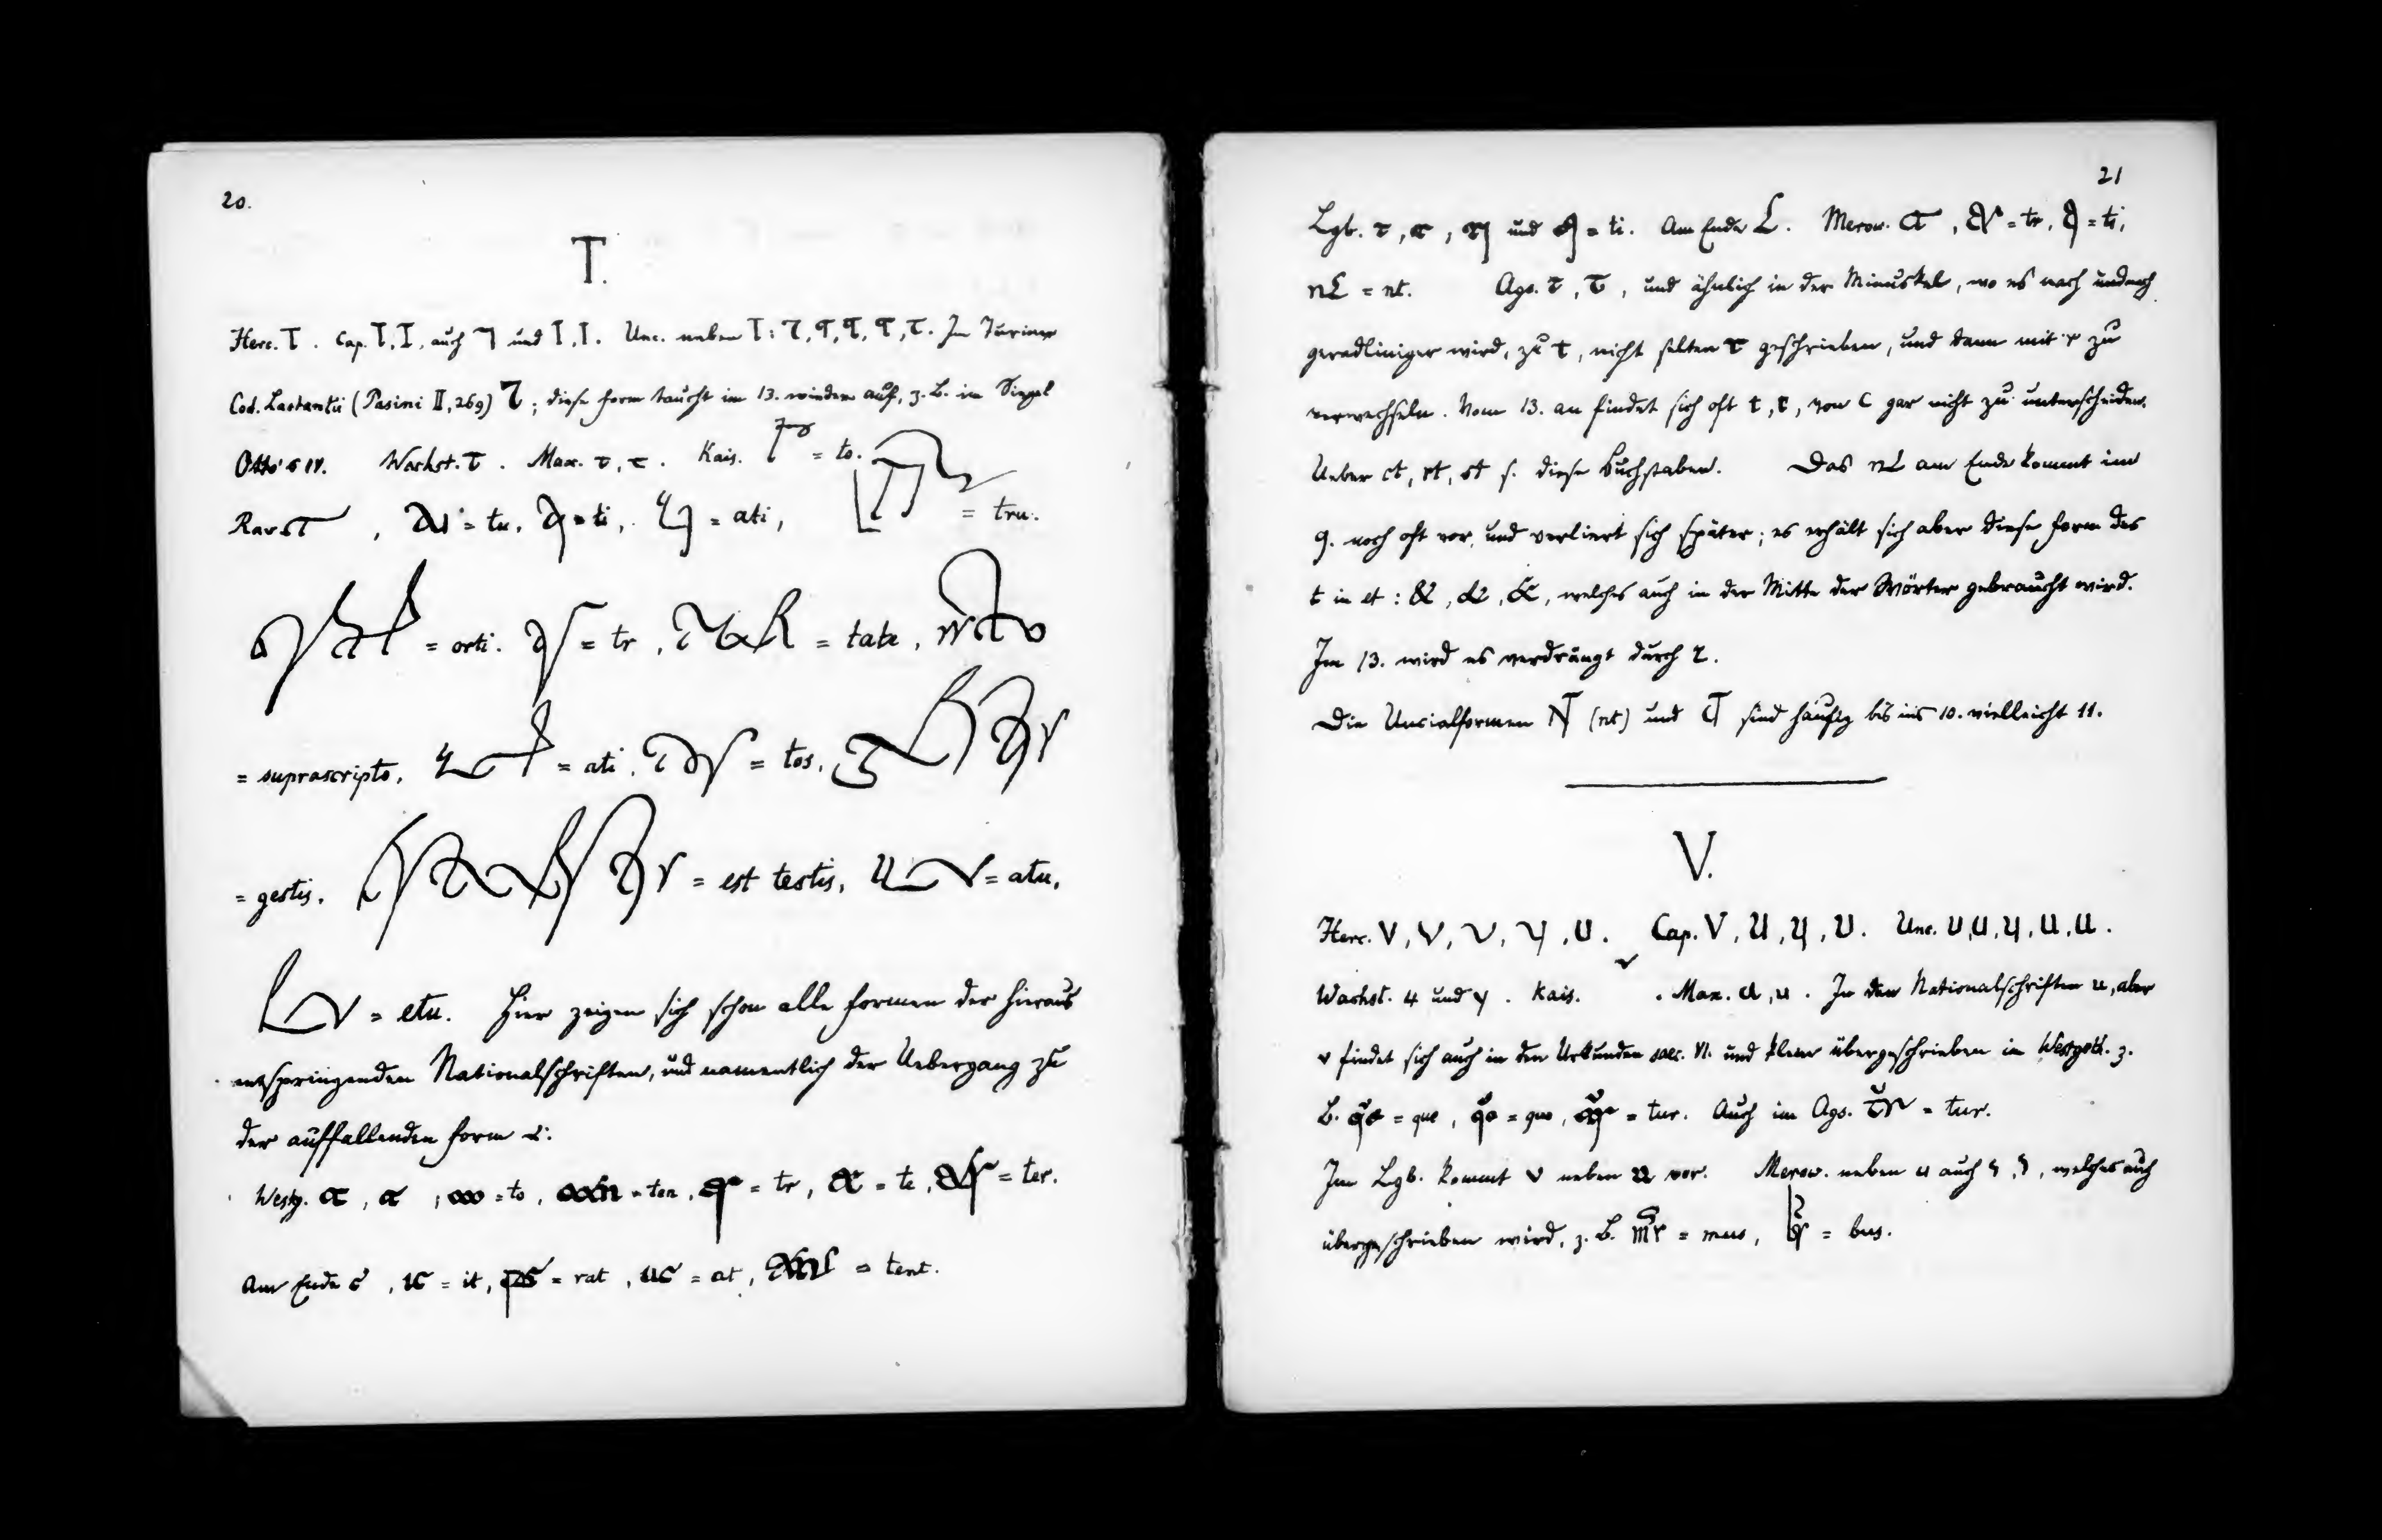 20.
T.
Herc. T. Cap. T, I, auch ꓶ und T, I. Unc. neben T: Ꞇ, Ꞇ, Ꞇ, Ꞇ, τ. Im Turiner
Cod. Lactantii (Pasini II, 269) Ꞇ; diese Form taucht im 13. wieder auf, z. B. im Siegel
Otto's IV. Wachst. τ. Max. τ, τ. Kais. = to.
Rav. , = tu, = ti, = ati, = tru.
= orti. = tr, = tate,
= suprascripto, = ati, = tos,
= gestis. = est testis, = atu,
= etu. Hier zeigen sich schon alle Formen der hieraus
entspringenden Nationalschriften, und namentlich der Uebergang zu
der auffallenden Form :
Westg. , , = to, = ten, = tr, = te, = ter.
Am Ende , = it, = rat, = at, = tent.
21
Lgb. τ, , und = ti. Am Ende . Merow. , = tr, = ti,
= nt. Ags. τ, τ, und ähnlich in der Minuskel, wo es nach und nach
geradliniger wird, zu t, nicht selten τ geschrieben, und dann mit r zu
verwechseln. Vom 13. an findet sich oft t, t, von c gar nicht zu unterscheiden.
Ueber ct, rt, st s. diese Buchstaben. Das am Ende kommt im
9. noch oft vor, und verliert sich später; es erhält sich aber diese Form des
t in et: &, &, &, welches auch in der Mitte der Wörter gebraucht wird.
Im 13. wird es verdrängt durch ⁊.
Die Uncialformen (nt) und sind häufig bis ins 10. vielleicht 11.
V.
Herc. V, V, , , U. Cap. V, U, , U. Unc. U, U, , U, U.
Wachst. und . Kais. . Max. u, u. In den Nationalschriften u, aber
v findet sich auch in den Urkunden saec. VI. und klein übergeschrieben in Westgoth. z.
B. = que, = quo, = tur. Auch im Ags. = tur.
Im Lgb. kommt v neben u vor. Merow. neben u auch , , welches auch
übergeschrieben wird, z. B. = mus, = bus.